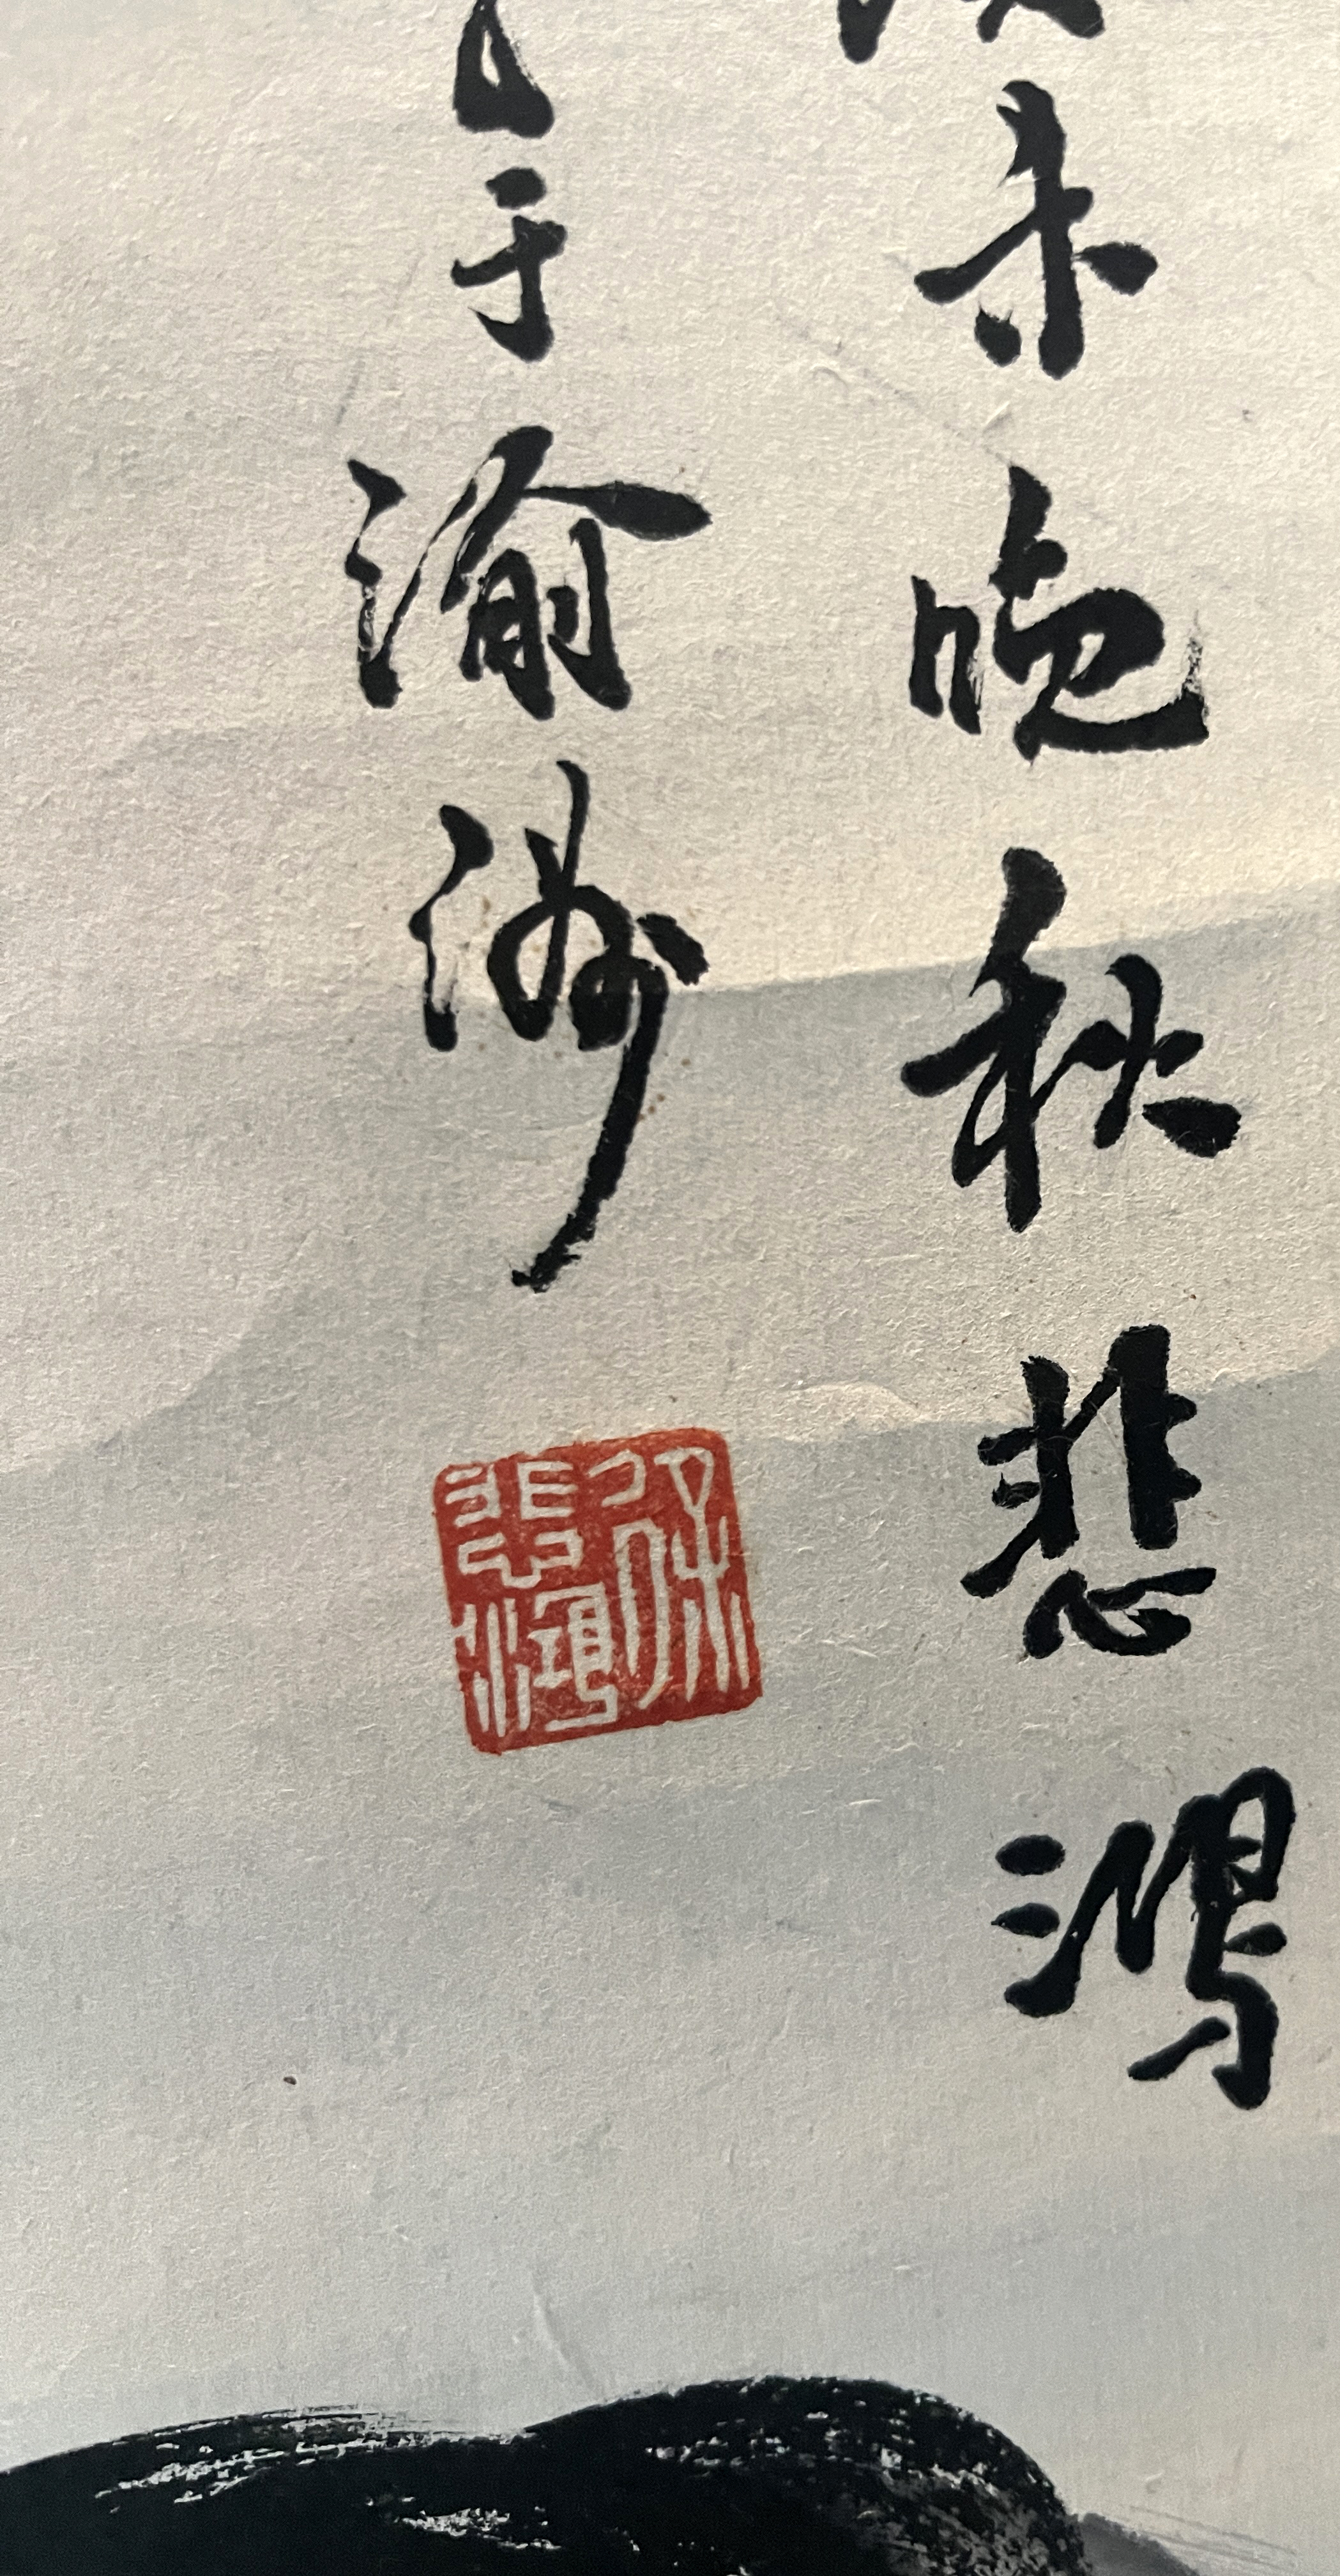 未晚秋悲鴻
于渝洲
徐悲鴻